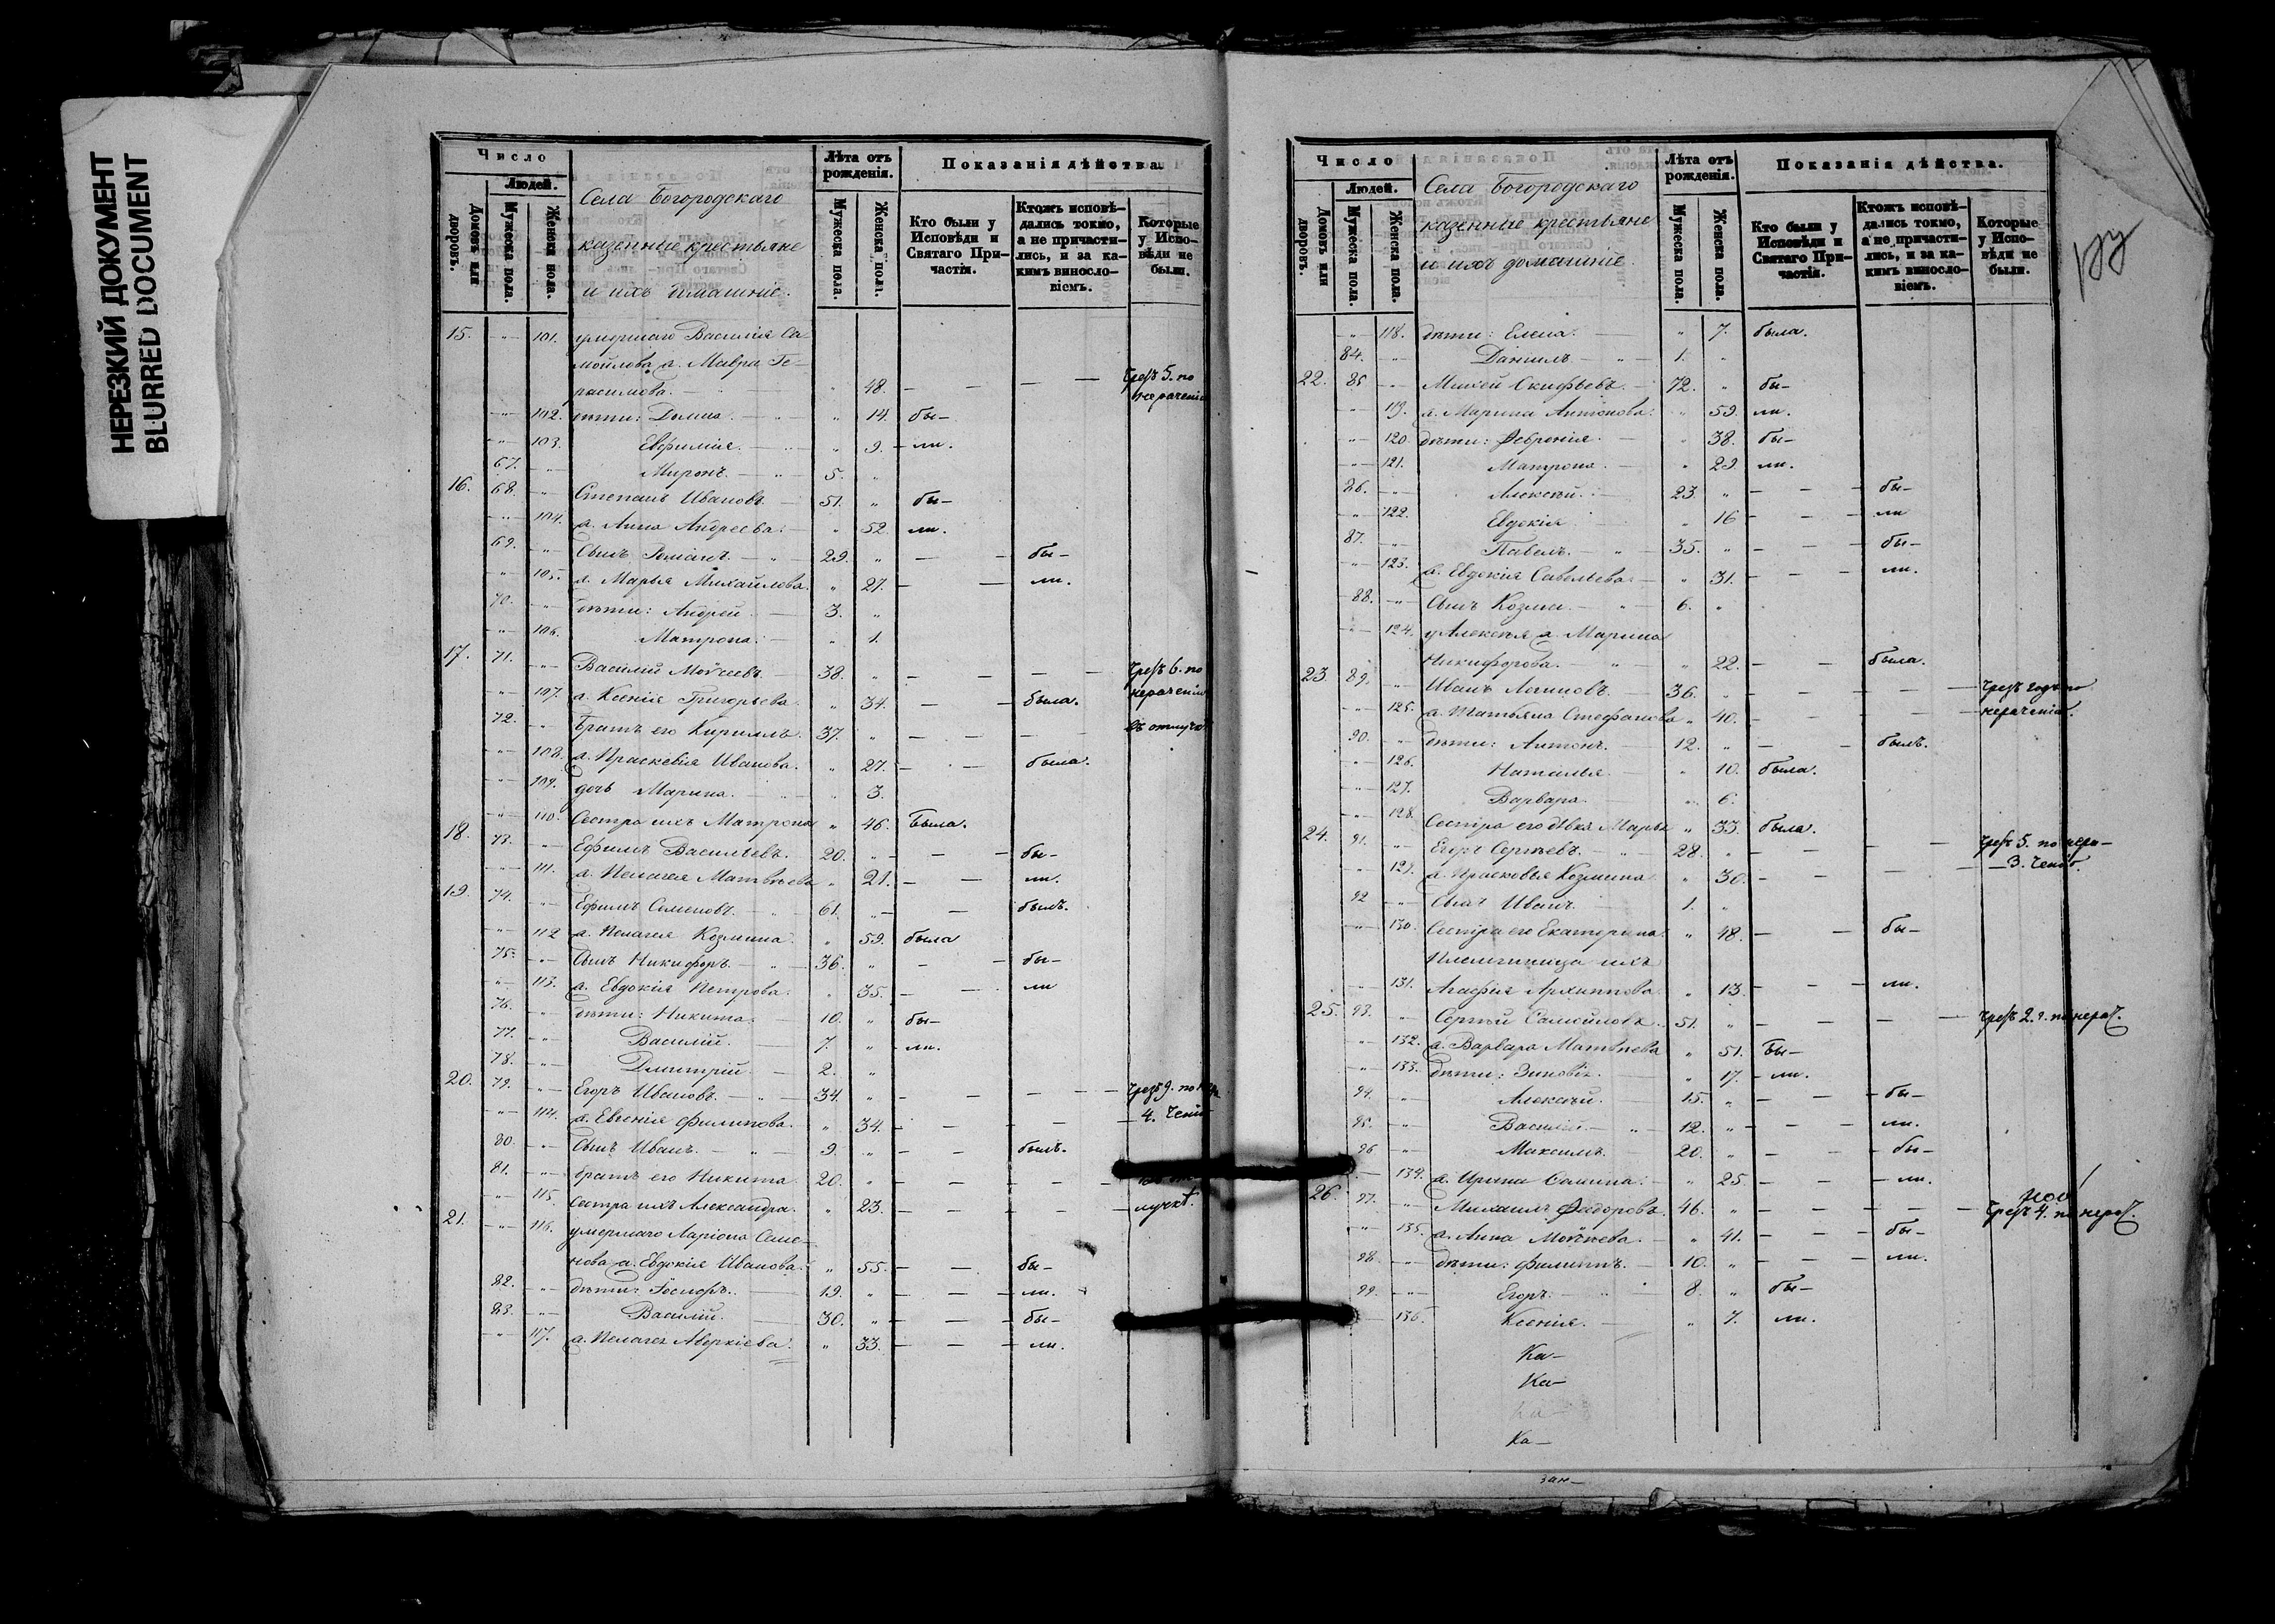 НЕРЕЗКИЙ ДОКУМЕНТ
BLURRED DOCUMENT
Число
Людей.
Домовъ или дворовъ.
Мужеска пола.
Женска пола.
Села Богородскаго
казенные крестьяне
и ихъ домашніе.
Лѣта отъ рожденія.
Мужеска пола.
Женска пола.
Показанія дѣйства.
Кто были у Исповѣди и Святаго При-частія.
Ктожъ исповѣ-дались токмо, а не причасти-лись, и за ка-кимъ виносло-віемъ.
Которые у Испо-вѣди не были.
15. " 101. умершаго Василія Са-
мойлова ж. Мавра Ге-
расимова. " 48. — — — чрезъ 5. по нераченію
" 102. дѣти: Домна. " 14. бы-
" 103. Евфимія. " 9. ли.
67. " Миронъ. 5. "
16. 68. " Степанъ Ивановъ 51. " бы-
" 104. ж. Анна Андреева. " 52. ли.
69. " Сынъ Романъ. 29. " — — бы-
" 105. ж. Марья Михайлова. " 27. — — ли.
70. " дѣти: Андрей. 3. "
" 106. Матрона. " 1.
17. 71. " Василій Моисеевъ. 38. " — — — — чрезъ 6. по
" 107. ж. Ксенія Григорьева. " 34. — — была. нераченію
72. " Братъ его Кириллъ. 37. " — — — — въ отлучкѣ
" 108. ж. Праскевія Иванова. " 27. — — была.
" 109. дочь Марина. " 3.
" 110. Сестра ихъ Матрона " 46. Была.
18. 73. " Ефимъ Васильевъ. 20. " — — бы-
" 111. ж. Пелагея Матвѣева " 21. — — ли.
19. 74. " Ефимъ Семеновъ. 61. " — — былъ.
" 112 ж. Пелагея Козмина. " 59. была
75. " Сынъ Никифоръ. 36. " — — бы-
" 113. ж. Евдокія Петрова. " 35. — — ли
76. " дѣти: Никита. 10. " бы-
77. " Василій. 7. " ли.
78. " Дмитрій. 2. "
20. 79. " Егоръ Ивановъ. 34. " — — — — чрезъ 9. по
" 114. ж. Евгенія Филипова. " 34. — — — — 4.
80. " Сынъ Иванъ. 9. " — — былъ.
81. " братъ его Никита 20. " — — — —
" 115. Сестра ихъ Александра. " 23. — — — — лучкѣ.
21. " 116. умершаго Ларіона Семе-
нова ж. Евдокія Иванова. " 55. — — бы-
82. " дѣти: Іосифъ. 19. " — — ли.
83. " Василій. 30. " — — бы-
" 117. ж. Пелагея Аверкіева. " 33. — — ли.
Число
Людей.
Домовъ или дворовъ.
Мужеска пола.
Женска пола.
Села Богородскаго
казенные крестьяне
и ихъ домашніе.
Лѣта отъ рожденія.
Мужеска пола.
Женска пола.
Показанія дѣйства.
Кто были у Исповѣди и Святаго При-частія.
Ктожъ исповѣ-дались токмо, а не причасти-лись, и за ка-кимъ виносло-віемъ.
Которые у Испо-вѣди не были.
" 118. дѣти: Елена. " 7. была.
84. " Даніилъ 1. "
22. 85 " Михей 72. " бы-
" 119. ж. Марина Антонова. " 59. ли.
" 120 дѣти: Февронія. " 38. бы-
" 121. Матрона. " 29 ли.
86. " Алексѣй. 23. " — — бы-
" 122. Евдокія " 16 — — ли
87. " Павелъ. 35. " — — бы-
" 123. ж. Евдокія Савельева. " 31. — — ли.
88. " Сынъ Козма. 6. "
" 124. у Алексѣя ж. Марина
Никифорова. " 22. — — была.
23 89. " Иванъ Логиновъ. 36. " — — — — чрезъ годъ по
" 125. ж. Татьяна Стефанова " 40. — — — — нераченію.
90. " дѣти: Антонъ. 12. " — — былъ.
" 126. Наталья. " 10. была.
" 127. Варвара. " 6.
" 128. Сестра его дѣвка Марья " 33. была.
24. 91. " Егоръ Сергѣевъ. 28. " — — — — чрезъ 5. по нера-
" 129. ж. Прасковья Козмина " 30. — — — — 3. ченію.
92 " Сынъ Иванъ. 1. "
" 130. Сестра его Екатерина. " 48. — — бы-
Племянница ихъ
" 131. Агафья Архиппова. " 13. — — ли.
25. 93. " Сергѣй Самойловъ. 51. " — — — — чрезъ 2. г. по нерач.
" 132. ж. Варвара Матвѣева " 51. Бы-
" 133. дѣти: Зиновія. " 17. ли.
94. " Алексѣй. 15. " — — бы-
95. " Василій. 12. " — — ли.
96 " Максимъ. 20. " — — бы-
134. ж. Ирина Савина. " 25 — — ли.
26. 97. " Михаилъ Ѳедоровъ. 46. " — — — — чрезъ 4. по нерач.
" 135. ж. Анна Моисеева. " 41. — — бы-
98. " дѣти: Филиппъ. 10. " — — ли.
99. " Егоръ. 8. " бы-
136. Ксенія. " 7. ли.
Ка-
Ка-
Ка-
Ка-
зан-